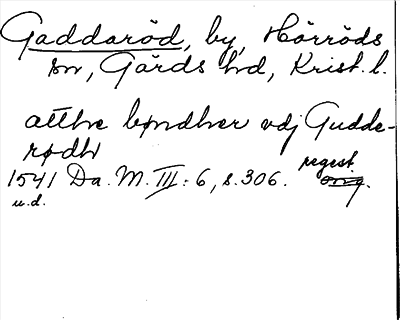 Gaddaröd, by, Hörröds
sn, Gärds hd, Krist. l.
atthe bøndher vdj Gudde-
rødh
regest.
1541 Da. M. III: 6, s. 306. orig.
u. d.